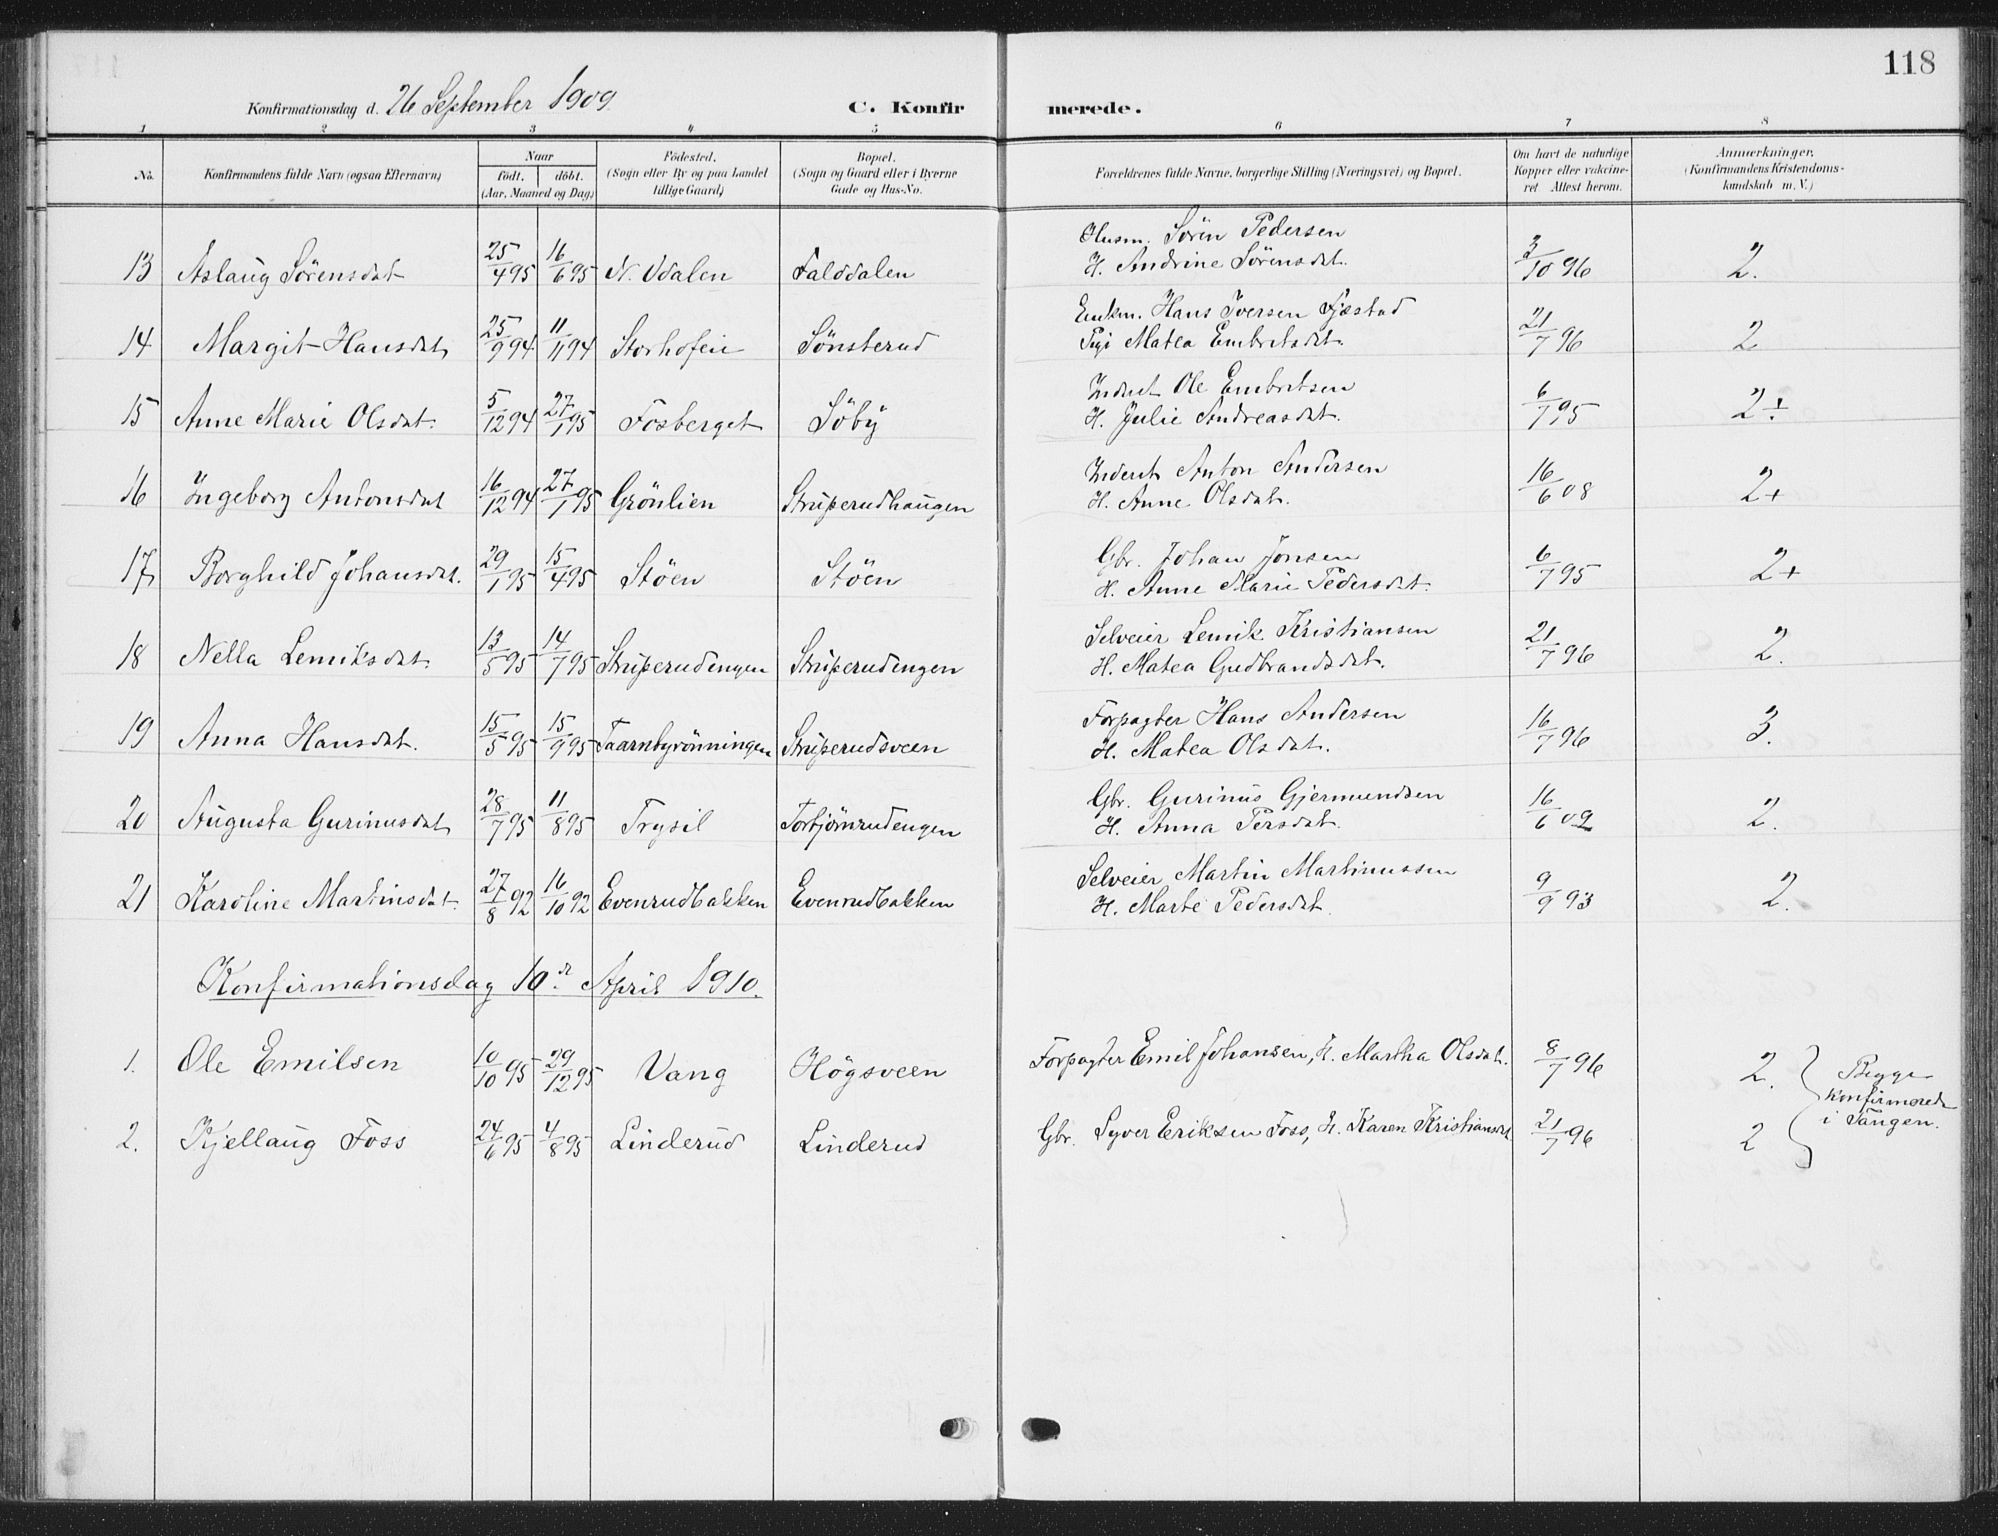 118
Konfirmationsdag d. 26 September 1909.
C. Konfirmerede.
1 2 3 4 5 6 7 8
No. Konfirmandens fulde Navn (ogsaa Efternavn) Naar födt. döbt. (Aar, Maaned og Dag) Födested. (Sogn eller By og paa Landet tillige Gaard) Bopæl. (Sogn og Gaard eller i Byerne Gade og Hus-No. Forældrenes fulde Navne, borgerlige Stilling (Næringsvei) og Bopæl. Om havt de naturlige Kopper eller vakcineret. Attest herom. Anmærkninger. (Konfirmandens Kristendomskundskab m. V.)
13 Aslaug Sörensdat 25/4 95 16/6 95 N. Odalen Falddalen Husm. Sören Pedersen H. Andrine Sörensdat. 3/10 96 2.
14 Margit Hansdat 25/9 94 11/11 94 Storhofen Sönsterud Enkm. Hans Iversen Fjæstad Pige Matea Embretsdat. 21/7 96 2
15 Anne Marie Olsdat. 5/12 94 27/1 95 Fosberget Söby Inderst Ole Embretsen H. Julie Andreasdat. 6/7 95 2÷
16 Ingeborg Antonsdat 16/12 94 27/1 95 Grönlien Struperudhaugen Inderst Anton Andersen H. Anne Olsdat. 16/6 08 2+
17 Borghild Johansdat. 29/1 95 15/4 95 Stöen Stöen Gbr. Johan Jonsen H. Anne Marie Pedersdat. 6/7 95 2+
18 Nella Lemiksdat. 13/5 95 14/7 95 Struperudengen Struperudengen Selveier Lemik Kristiansen H. Matea Gudbrandsdat. 21/7 96 2.
19 Anna Hansdat. 15/5 95 15/9 95 Taarnbyrönningen Struperudsveen Forpagter Hans Andersen H. Matea Olsdat. 16/7 96 3.
20 Augusta Gurinusdat 28/7 95 11/8 95 Trysil Torbjörnrudengen Gbr. Gurinus Gjermundsen H. Anna Persdat. 16/6 09 2.
21 Karoline Martinsdat. 27/8 92 16/10 92 Evenrudbakken Evenrudbakken Selveier Martin Martinussen H. Marte Pedersdat. 9/9 93 2.
Konfirmationsdag 10de April 1910.
1. Ole Emilsen 10/10 95 29/12 95 Vang Högsveen Forpagter Emil Johansen, H. Martha Olsdat. 8/7 96 2.
2. Kjellaug Foss 24/6 95 4/8 95 Linderud Linderud Gbr. Syver Eriksen Foss, H. Karen Kristiansdat 21/7 96 2
Begge
konfirmerede
i Tangen.